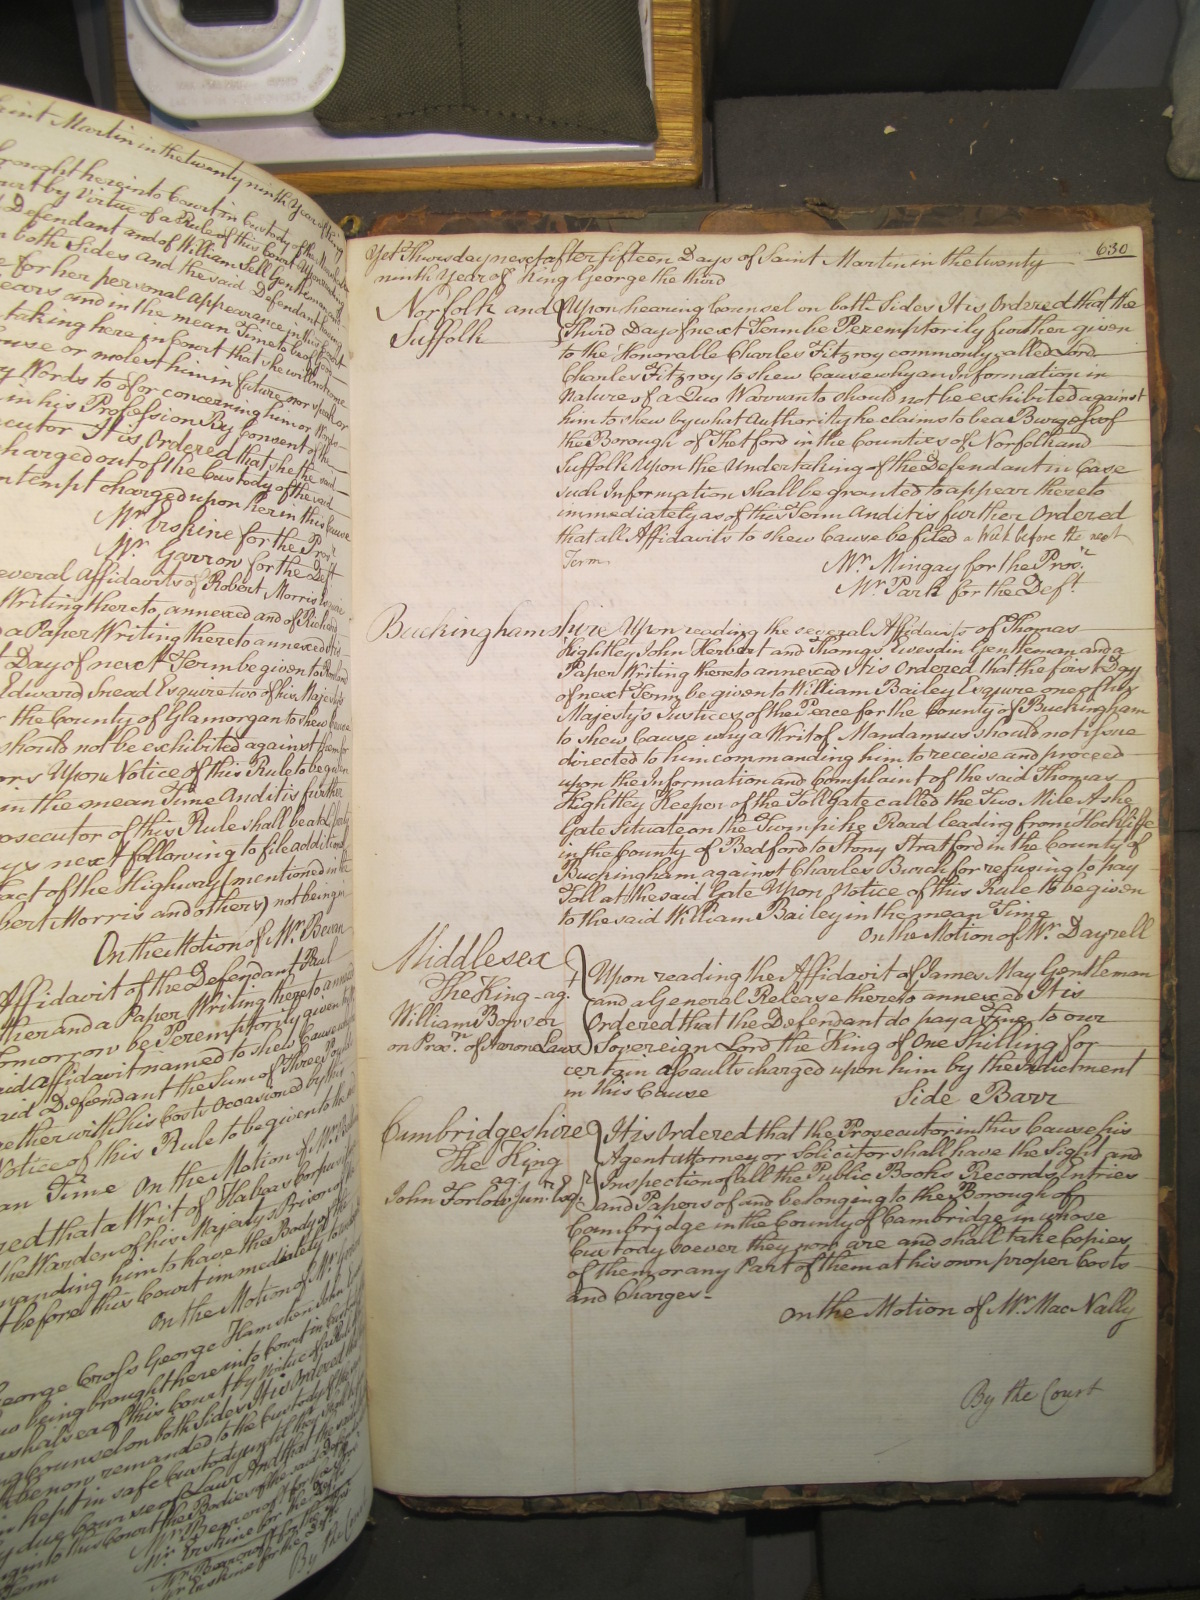 Saint Martin in the twenty ninth Year of King
brought here into Court in Custody of the
Court by Virtue of a Rule of this Court Upon reading
Defendant and of William Sell Gentleman and
both Sides And the said Defendant having
for her personal appearance in this Court
Years and in the mean Time to be of good
taking here in Court that she will not
abuse or molest him in future nor speak
any Words to of or concerning him or
in his Profession By Consent of the
Prosecutor It is Ordered that she the said
charged out of the Custody of the said
Contempt charged upon her in this Cause
Mr. Erskine for the Pros.r
Mr. Garrow for the Deft
several Affidavits of Robert Morris Esquire
Writing thereto annexed and of Richard
a Paper Writing thereto annexed It is
Day of next Term be given to Rowland
Edward Snead Esquire two of his Majesty's
the County of Glamorgan to shew Cause
should not be exhibited against them for
Upon Notice of this Rule to be given
in the mean Time And it is further
Prosecutor of this Rule shall be at Liberty
days next following to file additional
fact of the Highway (mentioned in the
Robert Morris and others) not being in
On the Motion of Mr. Bevan
Affidavit of the Defendant Paul
and a Paper Writing thereto annexed
Tomorrow be Peremptorily given
said affidavit named to shew Cause why
said Defendant the Sum of Three Pounds
together with his Costs Occasioned by this
Notice of this Rule to be given to the
mean Time On the Motion of Mr.
Ordered that a Writ of Habeas Corpus
the Warden of his Majesty's Prison of the
commanding him to have the Body of the
before this Court immediately to
On the Motion of Mr.
George Cross George Hamston John
being brought here into Court in Custody
Marshalsea of this Court by Virtue of a
Counsel on both Sides It is Ordered that
be now remanded to the Custody of the
kept in safe Custody until they shall be
by due Course of Law And that the said
into this Court the Bodies of the said
Term
Mr. Bearcroft
Mr. Erskine for the
Mr. Bearcroft for the
Mr Erskine for the Deft.
By the Court
630
Yet Thursday next after fifteen Days of Saint Martin in the twenty
ninth Year of King George the third
Norfolk and Upon hearing Counsel on both Sides It is Ordered that the
Suffolk Third Day of next Term be Peremptorily further given
to the Honorable Charles Fitzroy commonly called Lord
Charles Fitzroy to shew Cause why an Information in
Nature of a Quo Warranto should not be exhibited against
him to shew by what Authority he claims to be a Burgess of
the Borough of Thetford in the Counties of Norfolk and
Suffolk Upon the Undertaking of the Defendant in Case
such Information shall be granted to appear thereto
immediately as of this Term And it is further Ordered
that all Affidavits to shew Cause be filed a Week before the next
Term.
Mr. Mingay for the Pros.r
Mr. Park for the Def.t
Buckinghamshire Upon reading the several Affidavits of Thomas
Hightley John Herbert and Thomas Livesdin Gentleman and a
Paper Writing thereto annexed It is Ordered that the first Day
of next Term be given to William Bailey Esquire one of his
Majesty's Justices of the Peace for the County of Buckingham
to shew Cause why a Writ of Mandamus should not issue
directed to him commanding him to receive and proceed
upon the Information and Complaint of the said Thomas
Hightley Keeper of the Toll Gate called the Two Mile Ashe
Gate Situate on the Turnpike Road leading from Hockliffe
in the County of Bedford to Stony Stratford in the County of
Buckingham against Charles Burch for refusing to pay
Toll at the said Gate Upon Notice of this Rule to be given
to the said William Bailey in the mean Time
On the Motion of Mr. Dayrell
Middlesex Upon reading the Affidavit of James May Gentleman
The King ag. and a General Release thereto annexed It is
William Bowser Ordered that the Defendant do pay a Fine to our
on Pros.n of Aaron Laws Sovereign Lord the King of One Shilling for
certain assaults charged upon him by the Indictment
in this Cause Side Barr
Cambridgeshire It is Ordered that the Prosecutor in this Cause his
The King Agent Attorney or Solicitor shall have the Sight and
ag. Inspection of all the Public Books Records Entries
John Forlow Jun.r Esq. and Papers of and belonging to the Borough of
Cambridge in the County of Cambridge in whose
Custody soever they now are and shall take Copies
of them or any Part of them at his own proper Costs
and Charges -
On the Motion of Mr. Mac Nally
By the Court